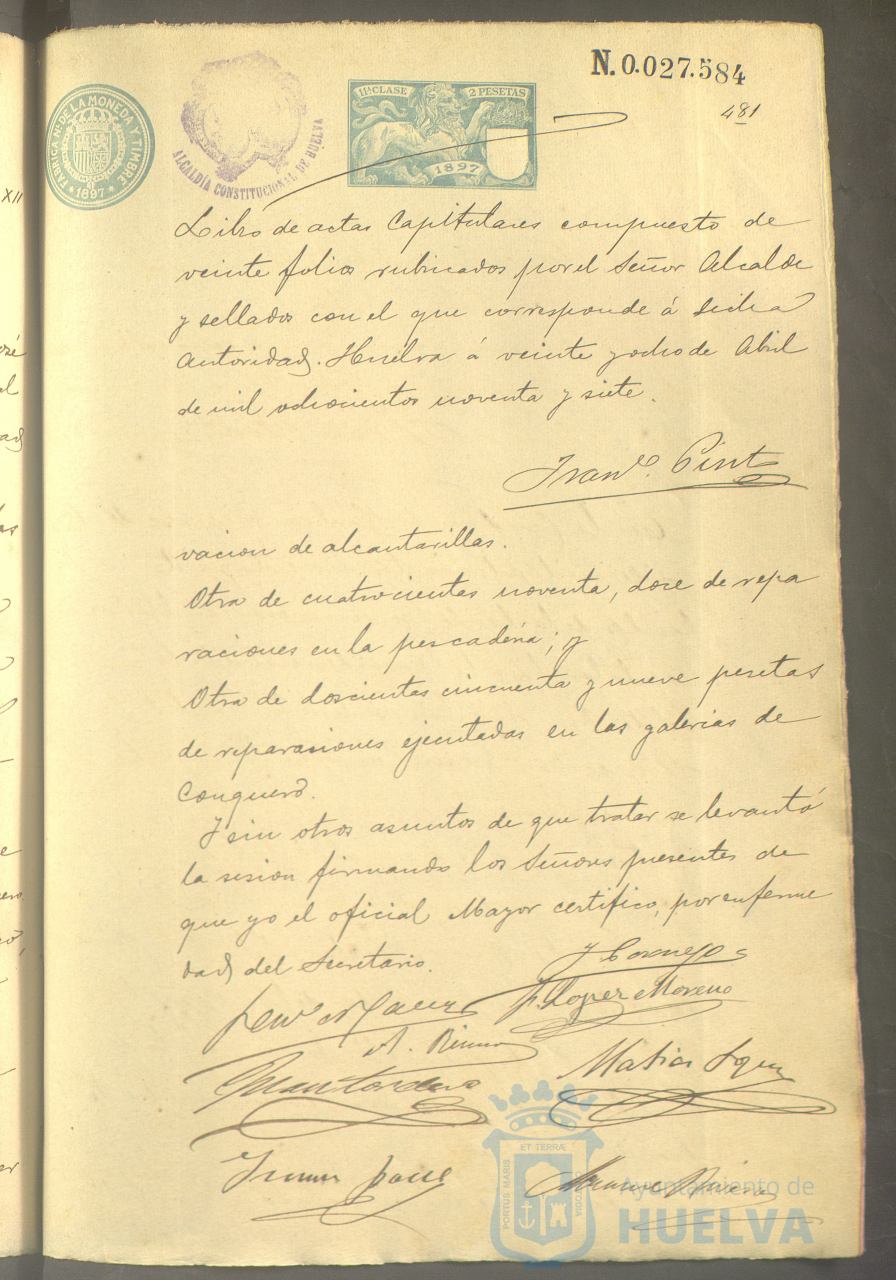 N. 0.027.584
481
FABRICA Nal. DE LA MONEDA Y TIMBRE
* 1897 *
ALCALDÍA CONSTITUCIONAL DE HUELVA
11ª CLASE 2 PESETAS
1897
Libro de actas Capitulares compuesto de
veinte folios rubricados por el Señor Alcalde
y sellados con el que corresponde á dicha
Autoridad. Huelva á veinte y ocho de Abril
de mil ochocientos noventa y siete.
vacion de alcantarillas.
Otra de cuatrocientas noventa, doce de repa
raciones en la pescaderia; y
Otra de doscientas cincuenta y nueve pesetas
de reparaciones ejecutadas en las galerias de
Conquero.
Y sin otros asuntos de que tratar se levantó
la sesion firmando los Señores presentes de
que yo el oficial Mayor certifico, por enferme
dad del Secretario.
J Cornejo
F. Lopez Moreno
Matias Lopez
PORTUS MARIS ET TERRÆ CUSTODIA
Ayuntamiento de
HUELVA
XII